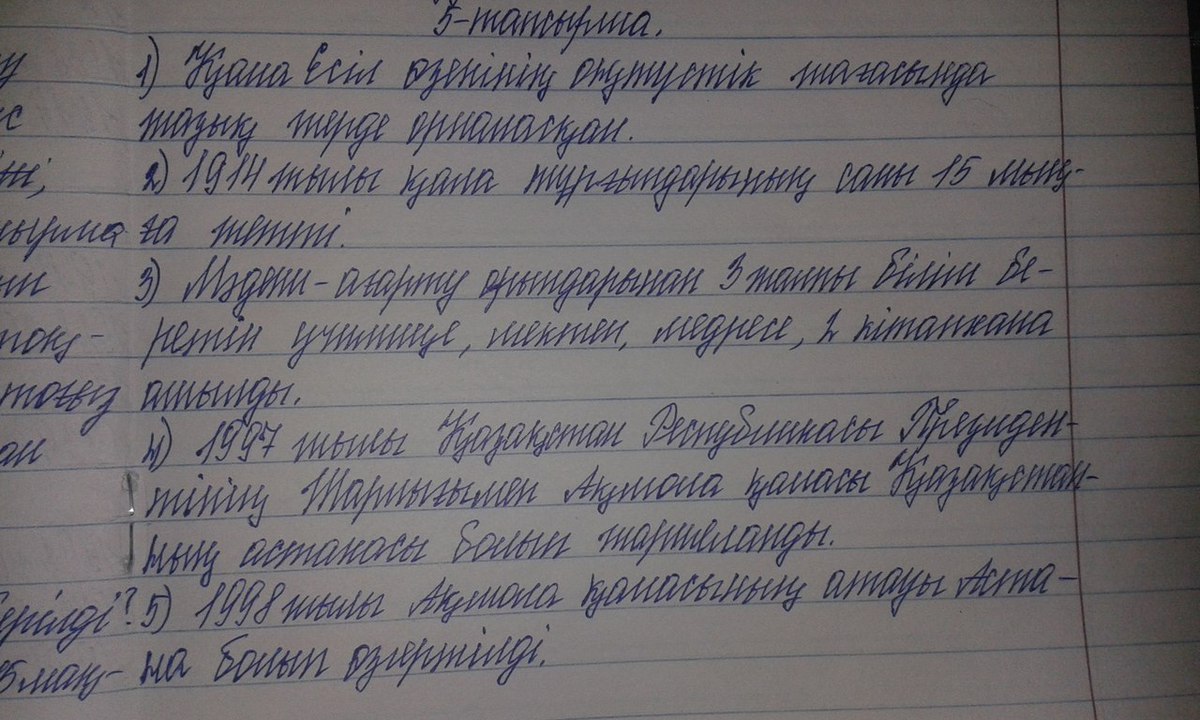 5-тапсырма.
1) Қала Есіл өзенінің оңтүстік жағасында
жазық жерде орналасқан.
2) 1914 жылы қала тұрғындарының саны 15 мың-
ға жетті.
3) Мәдени-ағарту орындарынан 3 жалпы білім бе-
ретін училище, мектеп, медресе, 2 кітапхана
ашылды.
4) 1997 жылы Қазақстан Республикасы Президен-
тінің Жарлығымен Ақмола қаласы Қазақстан-
ның астанасы болып жарияланды.
5) 1998 жылы Ақмола қаласының атауы Аста-
на болып өзгертілді.